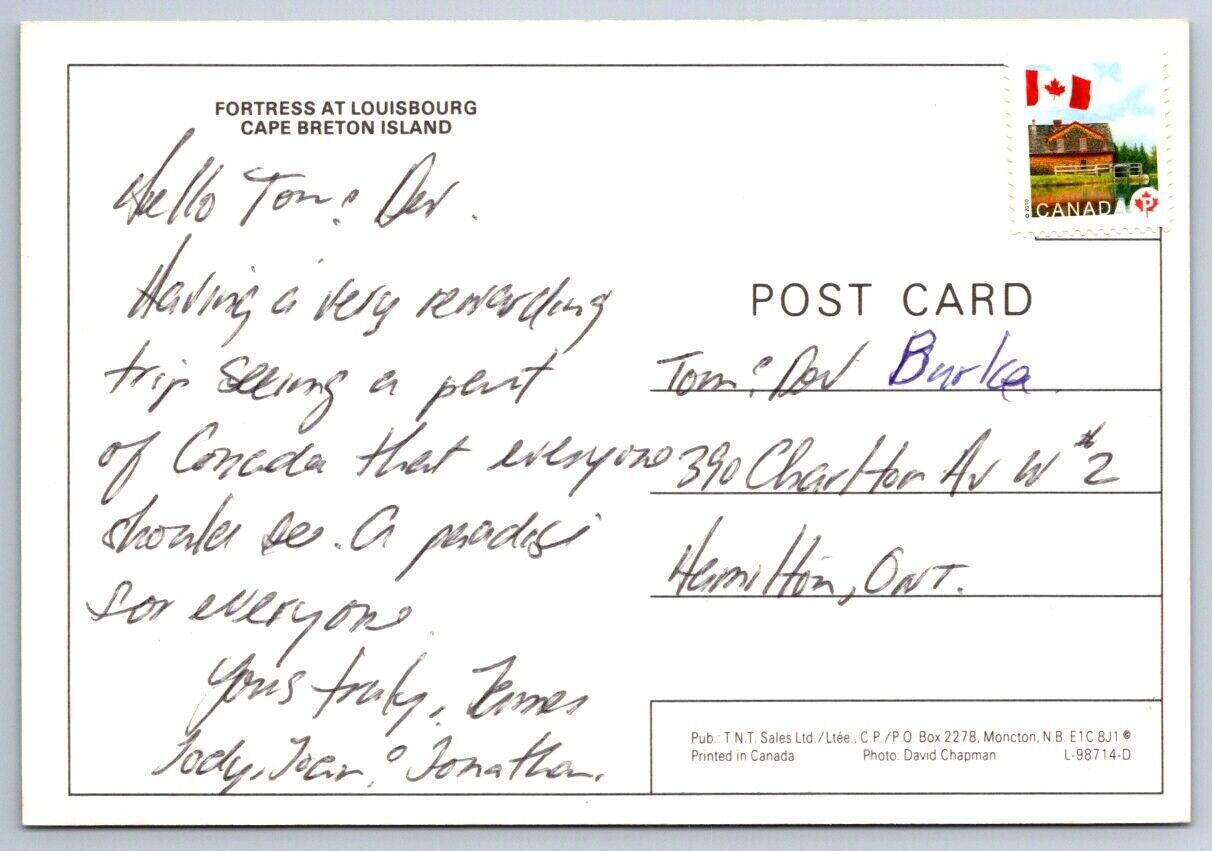 FORTRESS AT LOUISBOURG
CAPE BRETON ISLAND
© 2010
CANADA
P
Hello Tom & Dev.
Having a very rewarding
trip seeing a part
of Canada that everyone
should see. A paradise
for everyone.
Yours truly, James
Jody, Joan & Jonathan.
POST CARD
Tom & Dev Burke
390 Charlton Av W #2
Hamilton, ONT.
Pub.: T.N.T. Sales Ltd./Ltée., C.P./P.O. Box 2278, Moncton, N.B. E1C 8J1 ©
Printed in Canada Photo: David Chapman L-98714-D